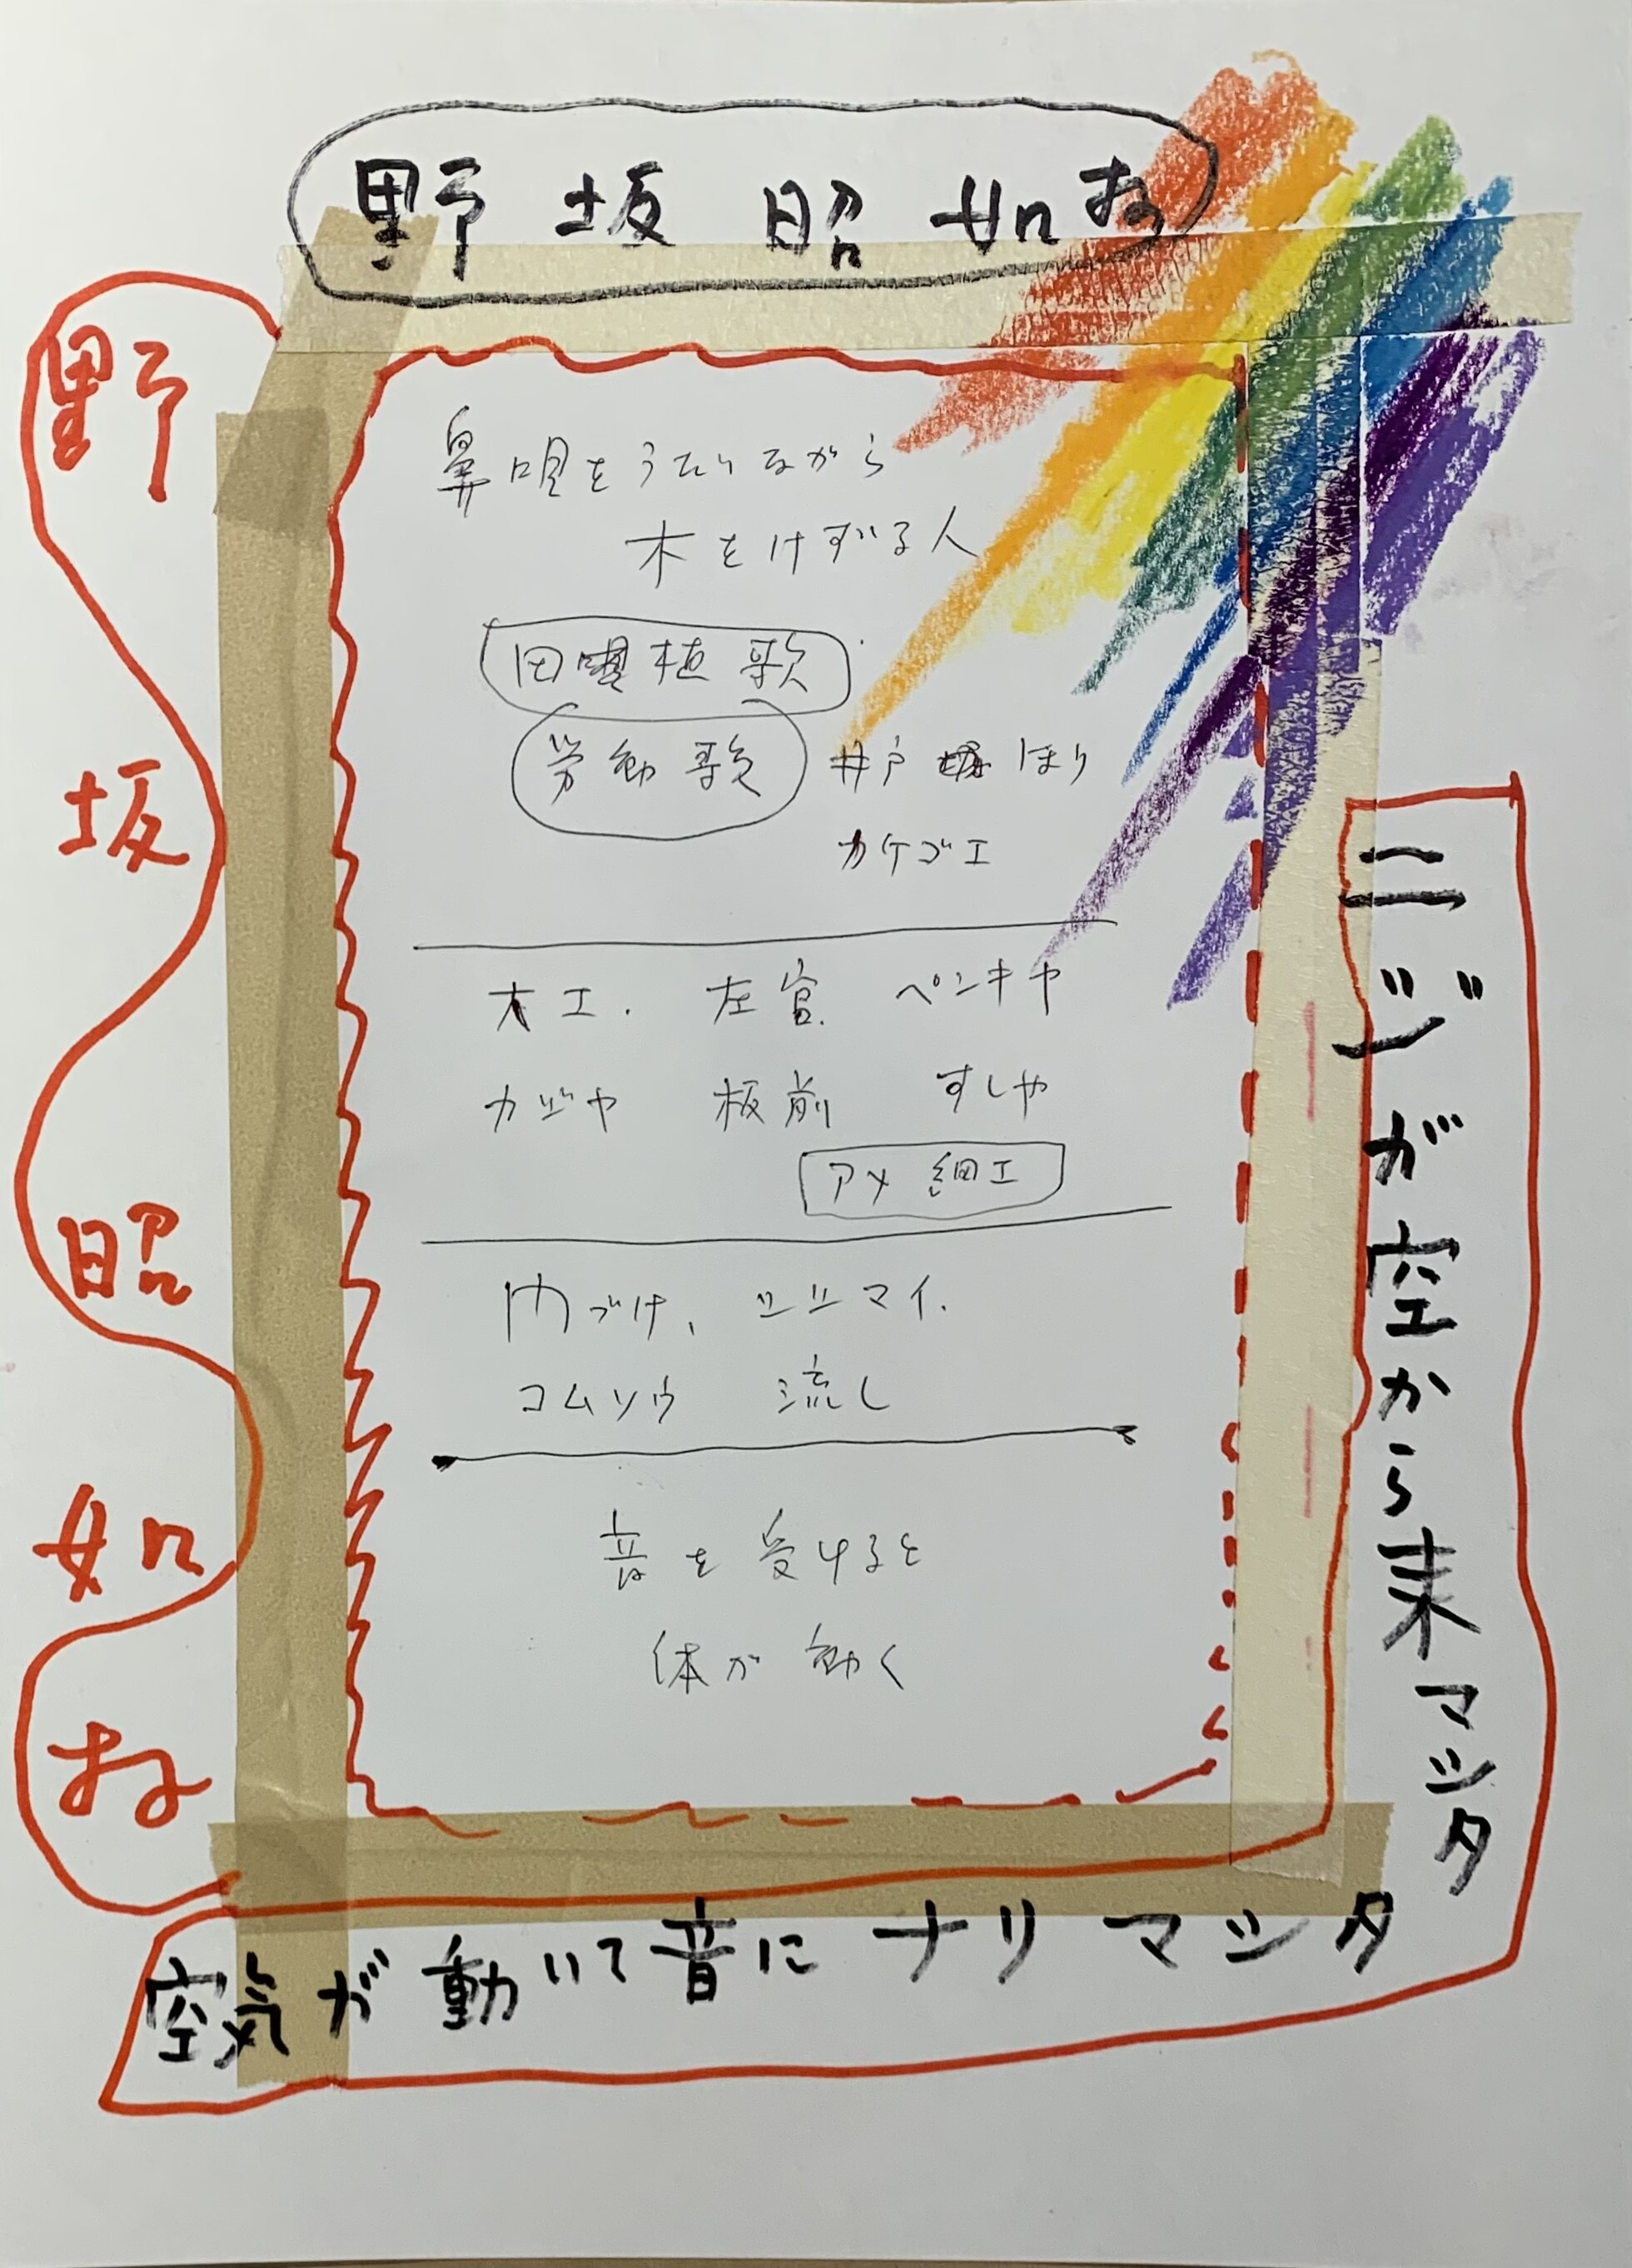 野坂昭如お
野坂昭如お
鼻唄をうたいながら
木をけずる人
田植歌
労働歌 井戸ほり
カケゴエ
大工. 左官. ペンキヤ
カジヤ 板前 すしや
アメ細工
門づけ、シシマイ.
コムソウ 流し
音を受けると
体が動く
ニジが空から来マシタ
空気が動いて音にナリマシタ